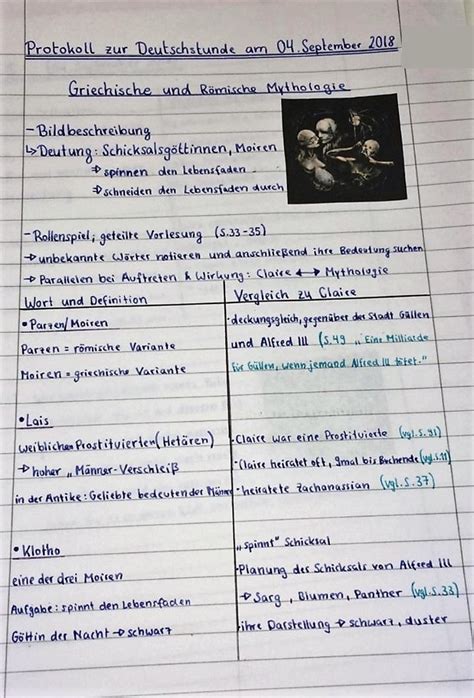 Protokoll zur Deutschstunde am 04. September 2018
Griechische und Römische Mythologie
- Bildbeschreibung
↳ Deutung: Schicksalsgöttinnen, Moiren
→ spinnen den Lebensfaden
→ schneiden den Lebensfaden durch
- Rollenspiel, geteilte Vorlesung (S.33-35)
→ unbekannte Wörter notieren und anschließend ihre Bedeutung suchen
→ Parallelen bei Auftreten & Wirkung: Claire ↔ Mythologie
Wort und Definition
• Parzen/Moiren
Parzen = römische Variante
Moiren = griechische Variante
• Lais
weiblichen Prostituierten (Hetären)
→ hoher „Männer-Verschleiß
in der Antike: Geliebte bedeuten der Männer
• Klotho
eine der drei Moiren
Aufgabe: spinnt den Lebensfaden
Göttin der Nacht → schwarz
Vergleich zu Claire
- deckungsgleich, gegenüber der Stadt Güllen
und Alfred Ill (S.49 „Eine Milliarde
für Güllen, wenn jemand Alfred Ill tötet."
- Claire war eine Prostituierte (vgl. S. 91)
- Claire heiratet oft, 9mal bis Buchende (vgl. S. 11)
- heiratete Zachanassian (vgl. S. 37)
„spinnt" Schicksal
- Planung des Schicksals von Alfred Ill
→ Sarg, Blumen, Panther (vgl. S. 33)
- ihre Darstellung → schwarz, duster